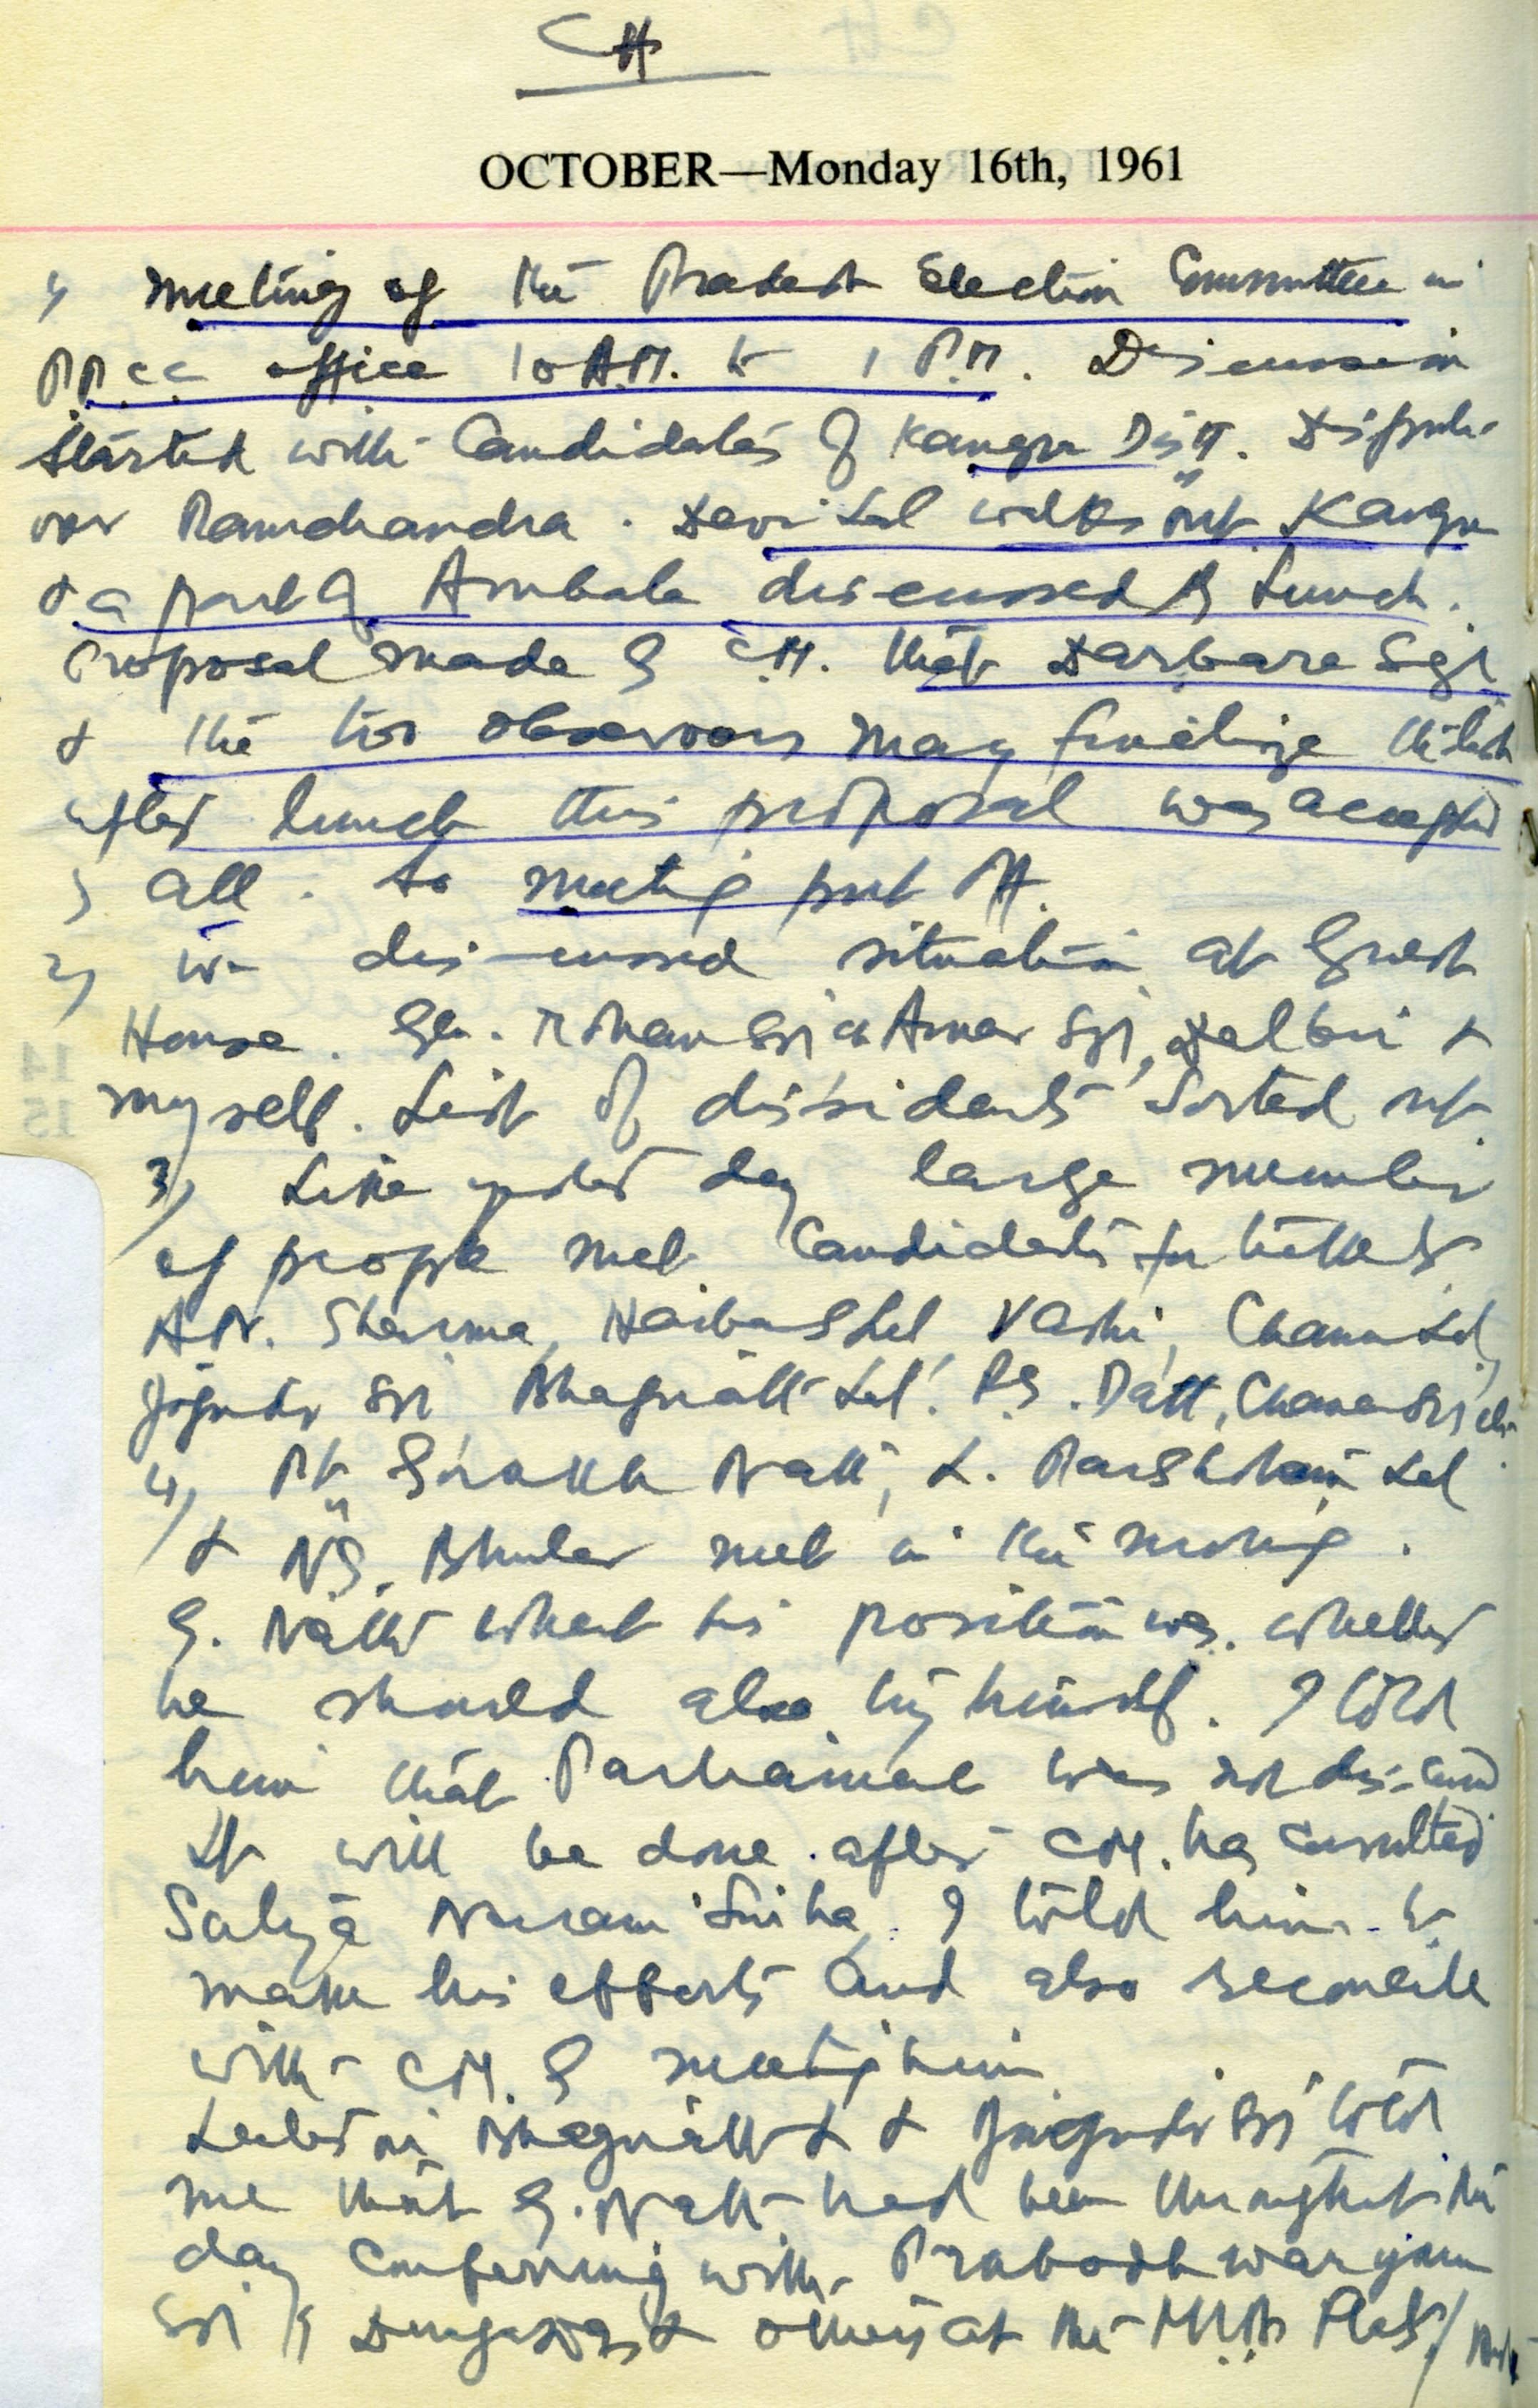 CH
OCTOBER—Monday 16th, 1961
1) Meeting of the Pradesh Election Committee in
P.P.C.C. office 10 A.M. to 1 P.M. Discussion
started with Candidates of Kangra Distt. Dispute
over Ramchandra. Devi Lal walks out. Kangra
& a part of Ambala discussed by Lunch.
Proposal made by C.M. that Darbara Sgh
& the two observers may finalize the list
after lunch this proposal was accepted
by all. So meeting put off.
2) We discussed situation at Guest
House. Gen. Mohan Sgh Amar Sgh, Dalbir &
myself. List of dissidents sorted out.
3) Like yesterday large number
of people met. Candidates for tickets
A.N. Sharma, Harbans Lal, Vashi, Chaman Lal,
Joginder Sgh Bhagnath Lal. P.S. Datt, Chanan Sgh etc.
4) Pt. Gorakh Nath, L. Parshotam Lal
& N.S. Bhuler met in the morning.
G. Nath what his position was. Whether
he should also try himself. I told
him that Parliament was not discussed
It will be done after C.M. has consulted
Satya Narain Sinha. I told him to
make his efforts and also reconcile
with C.M. by meeting him.
Later on Bhagnath L & Joginder Sgh told
me that G. Nath had been throughout the
day conferring with Prabodh Waryam
Sgh Durgadas & others at the M.L.A. Flats/